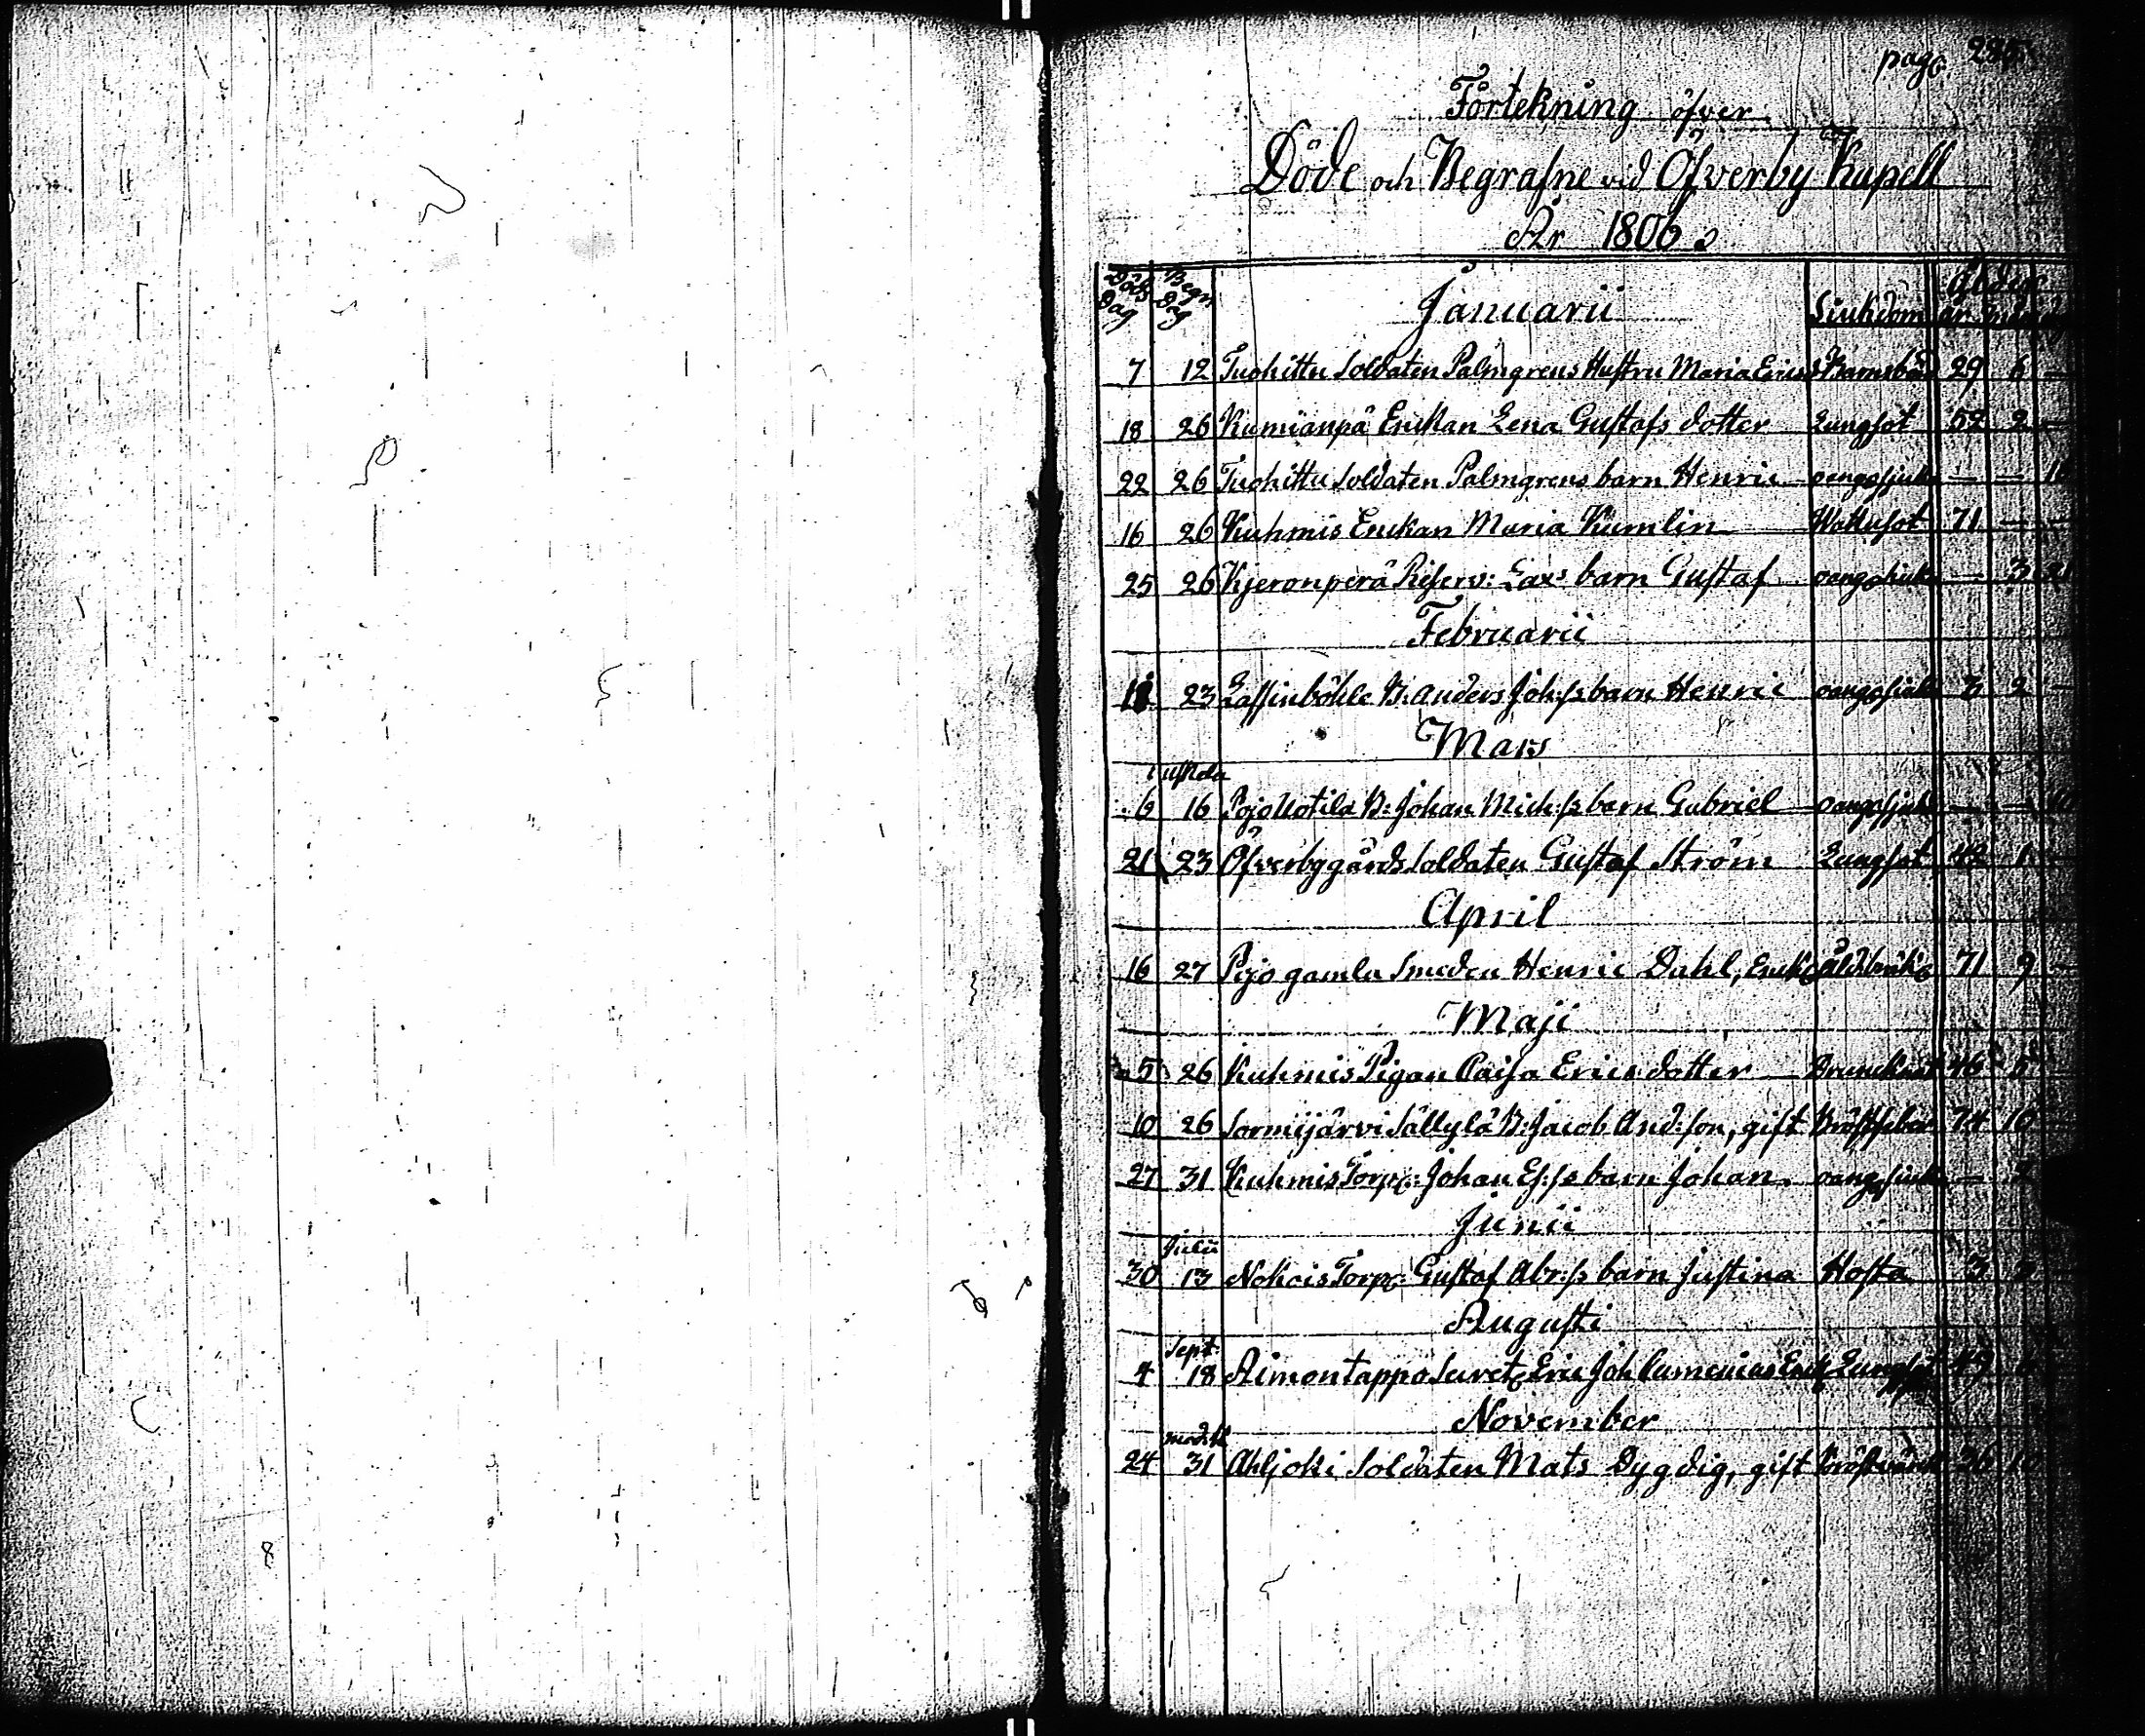 pag: 225
Förtekning öfver
Döde och Begrafne vid Öfverby Kapell
År 1806
Döds Dag Begr: Dag Januarii Siukdom Ålder
år
7 12 Tuohittu Soldaten Palmgrens Hustru Maria Ericsd Barnsbörd 29 6 —
18 26 Kumianpä Enckan Lena Gustafs dotter Lungsot 52 2 —
22 26 Tuohittu Soldaten Palmgrens barn Henric oangifsjuk — —
16 26 Kuhmis Enckan Maria Kumlin Wattusot 71 — —
25 26 Kjeronperä Reserv: Lax's barn Gustaf — 3 21
Februarii
11 23 Lassinböhle B: Anders Joh:ss barn Henric 3 2 —
Mars
6 16 Pojo Uotila B: Johan Mich:ss barn Gabriel — —
21 23 Öfverbygårds Soldaten Gustaf Ström Lungsot 42 1
April
16 27 Pojo gamla Smeden Henric Dahl, Enkl: 71 9 —
Maji
5 26 Kuhmis Pigan Caisa Ericsdotter Drunknat 46 5
10 26 Sormijärvi Sällylä B: Jacob And:son, gift Bröstfeber 74 10
27 31 Kuhmis Torp: Johan Es:ss barn Johan — 2
Junii
Julii
30 13 Nohois Torp: Gustaf Abr:ss barn Justina Hosta 3
Augusti
Sept:
4 18 Aimontappo Eric Joh Cumenius Lungsot 49
November
24 31 Ahljoki Soldaten Mats Dygdig, gift 36 10